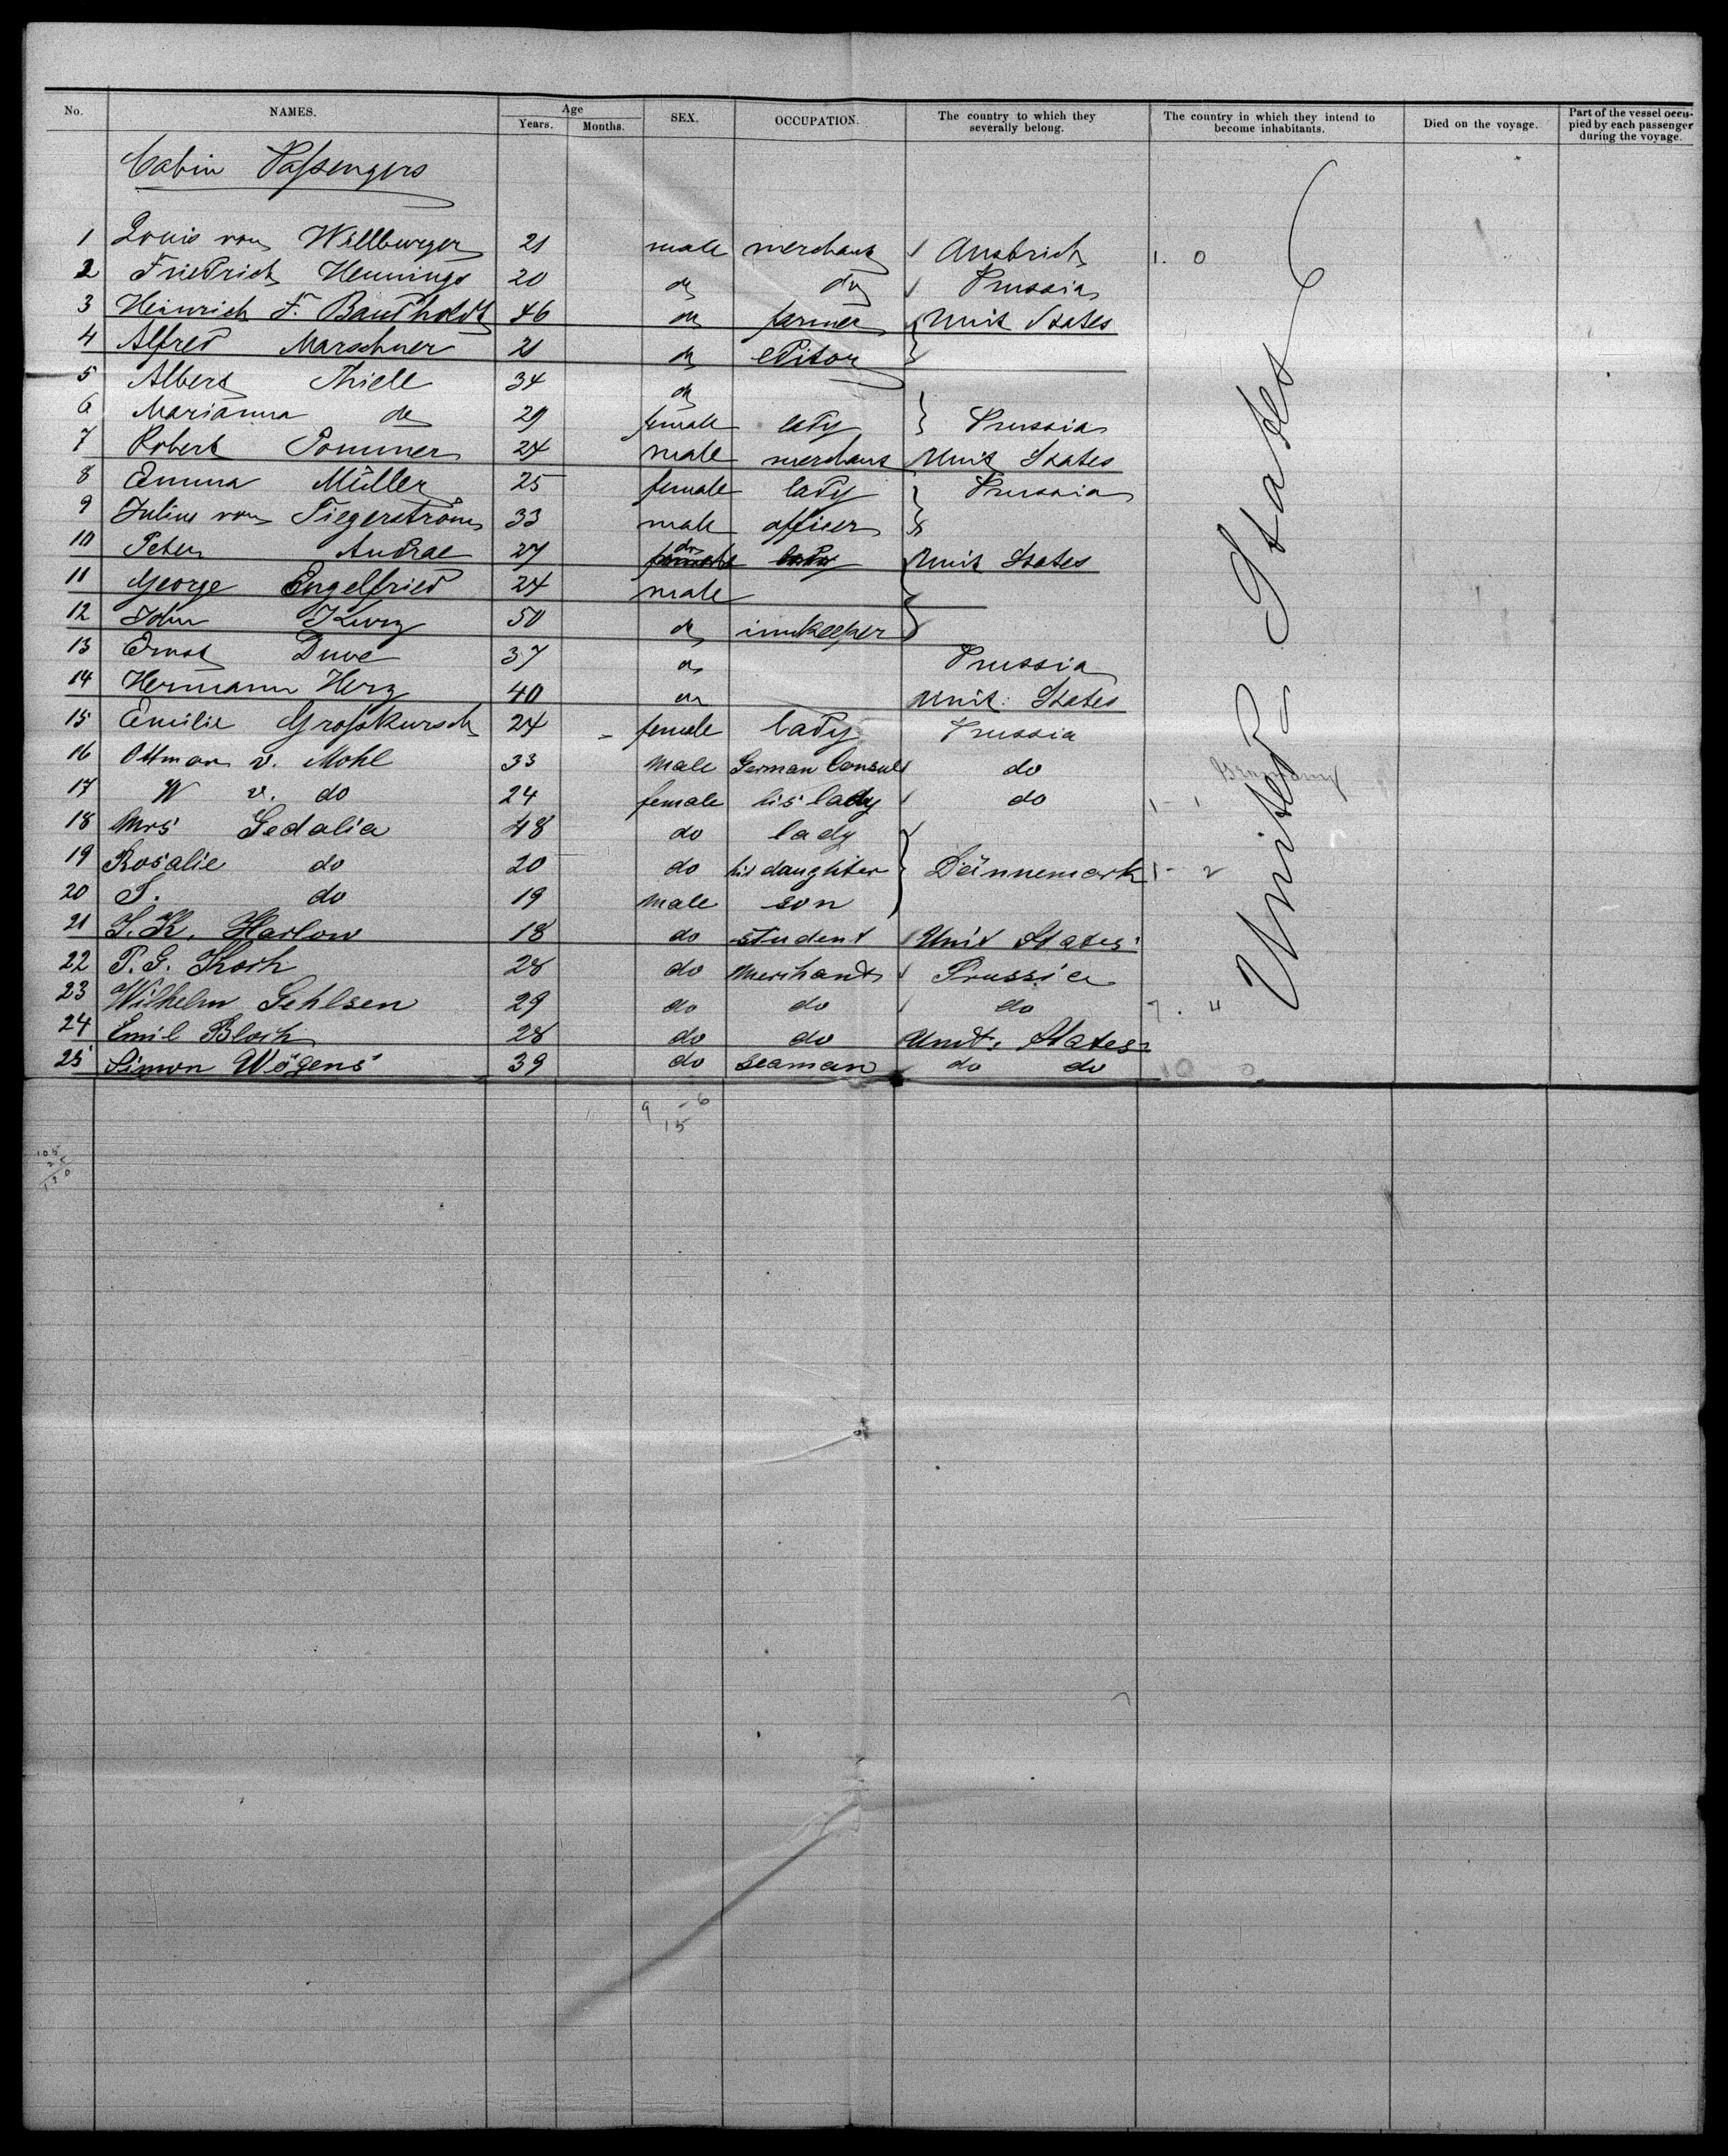 No. NAMES. Age Years. Months. SEX. OCCUPATION. The country to which they severally belong. The country in which they intend to become inhabitants. Died on the voyage. Part of the vessel occupied by each passenger during the voyage.
Cabin Passengers
1 Louis von Willburger 21 male merchant Austrich 1. 0
2 Friedrich Hennings 20 do do Prussia
3 Heinrich F. Baudholdt 46 do farmer Unit States
4 Alfred Marschner 21 do editor
5 Albert Thiele 34 do
6 Marianna do 29 female lady Prussia
7 Robert Pommer 24 male merchant Unit States
8 Emma Müller 25 female lady Prussia
9 Julius von Tiegerström 33 male officer
10 Peter Andrae 27 do Unit States
11 George Engelfried 24 male
12 John Kurz 50 do innkeeper
13 Ernst Duve 37 do Prussia
14 Hermann Herz 40 do Unit. States
15 Emilie Großkursch 24 female lady Prussia
16 Ottmar v. Mohl 33 male German Consul do
17 W v. do 24 female his lady do 1 - 1
18 Mrs Gedalia 48 do lady
19 Rosalie do 20 do his daughter Dännemark 1 - 2
20 S. do 19 male son
21 J. K. Harlow 18 do student Unit States
22 P. G. Koch 28 do merchant Prussia
23 Wilhelm Gehlsen 29 do do do 7. 4
24 Emil Bloch 28 do do Unit. States
25 Simon Wögens 39 do seaman do do 10 0
United States
9 - 6
15
105
25
130